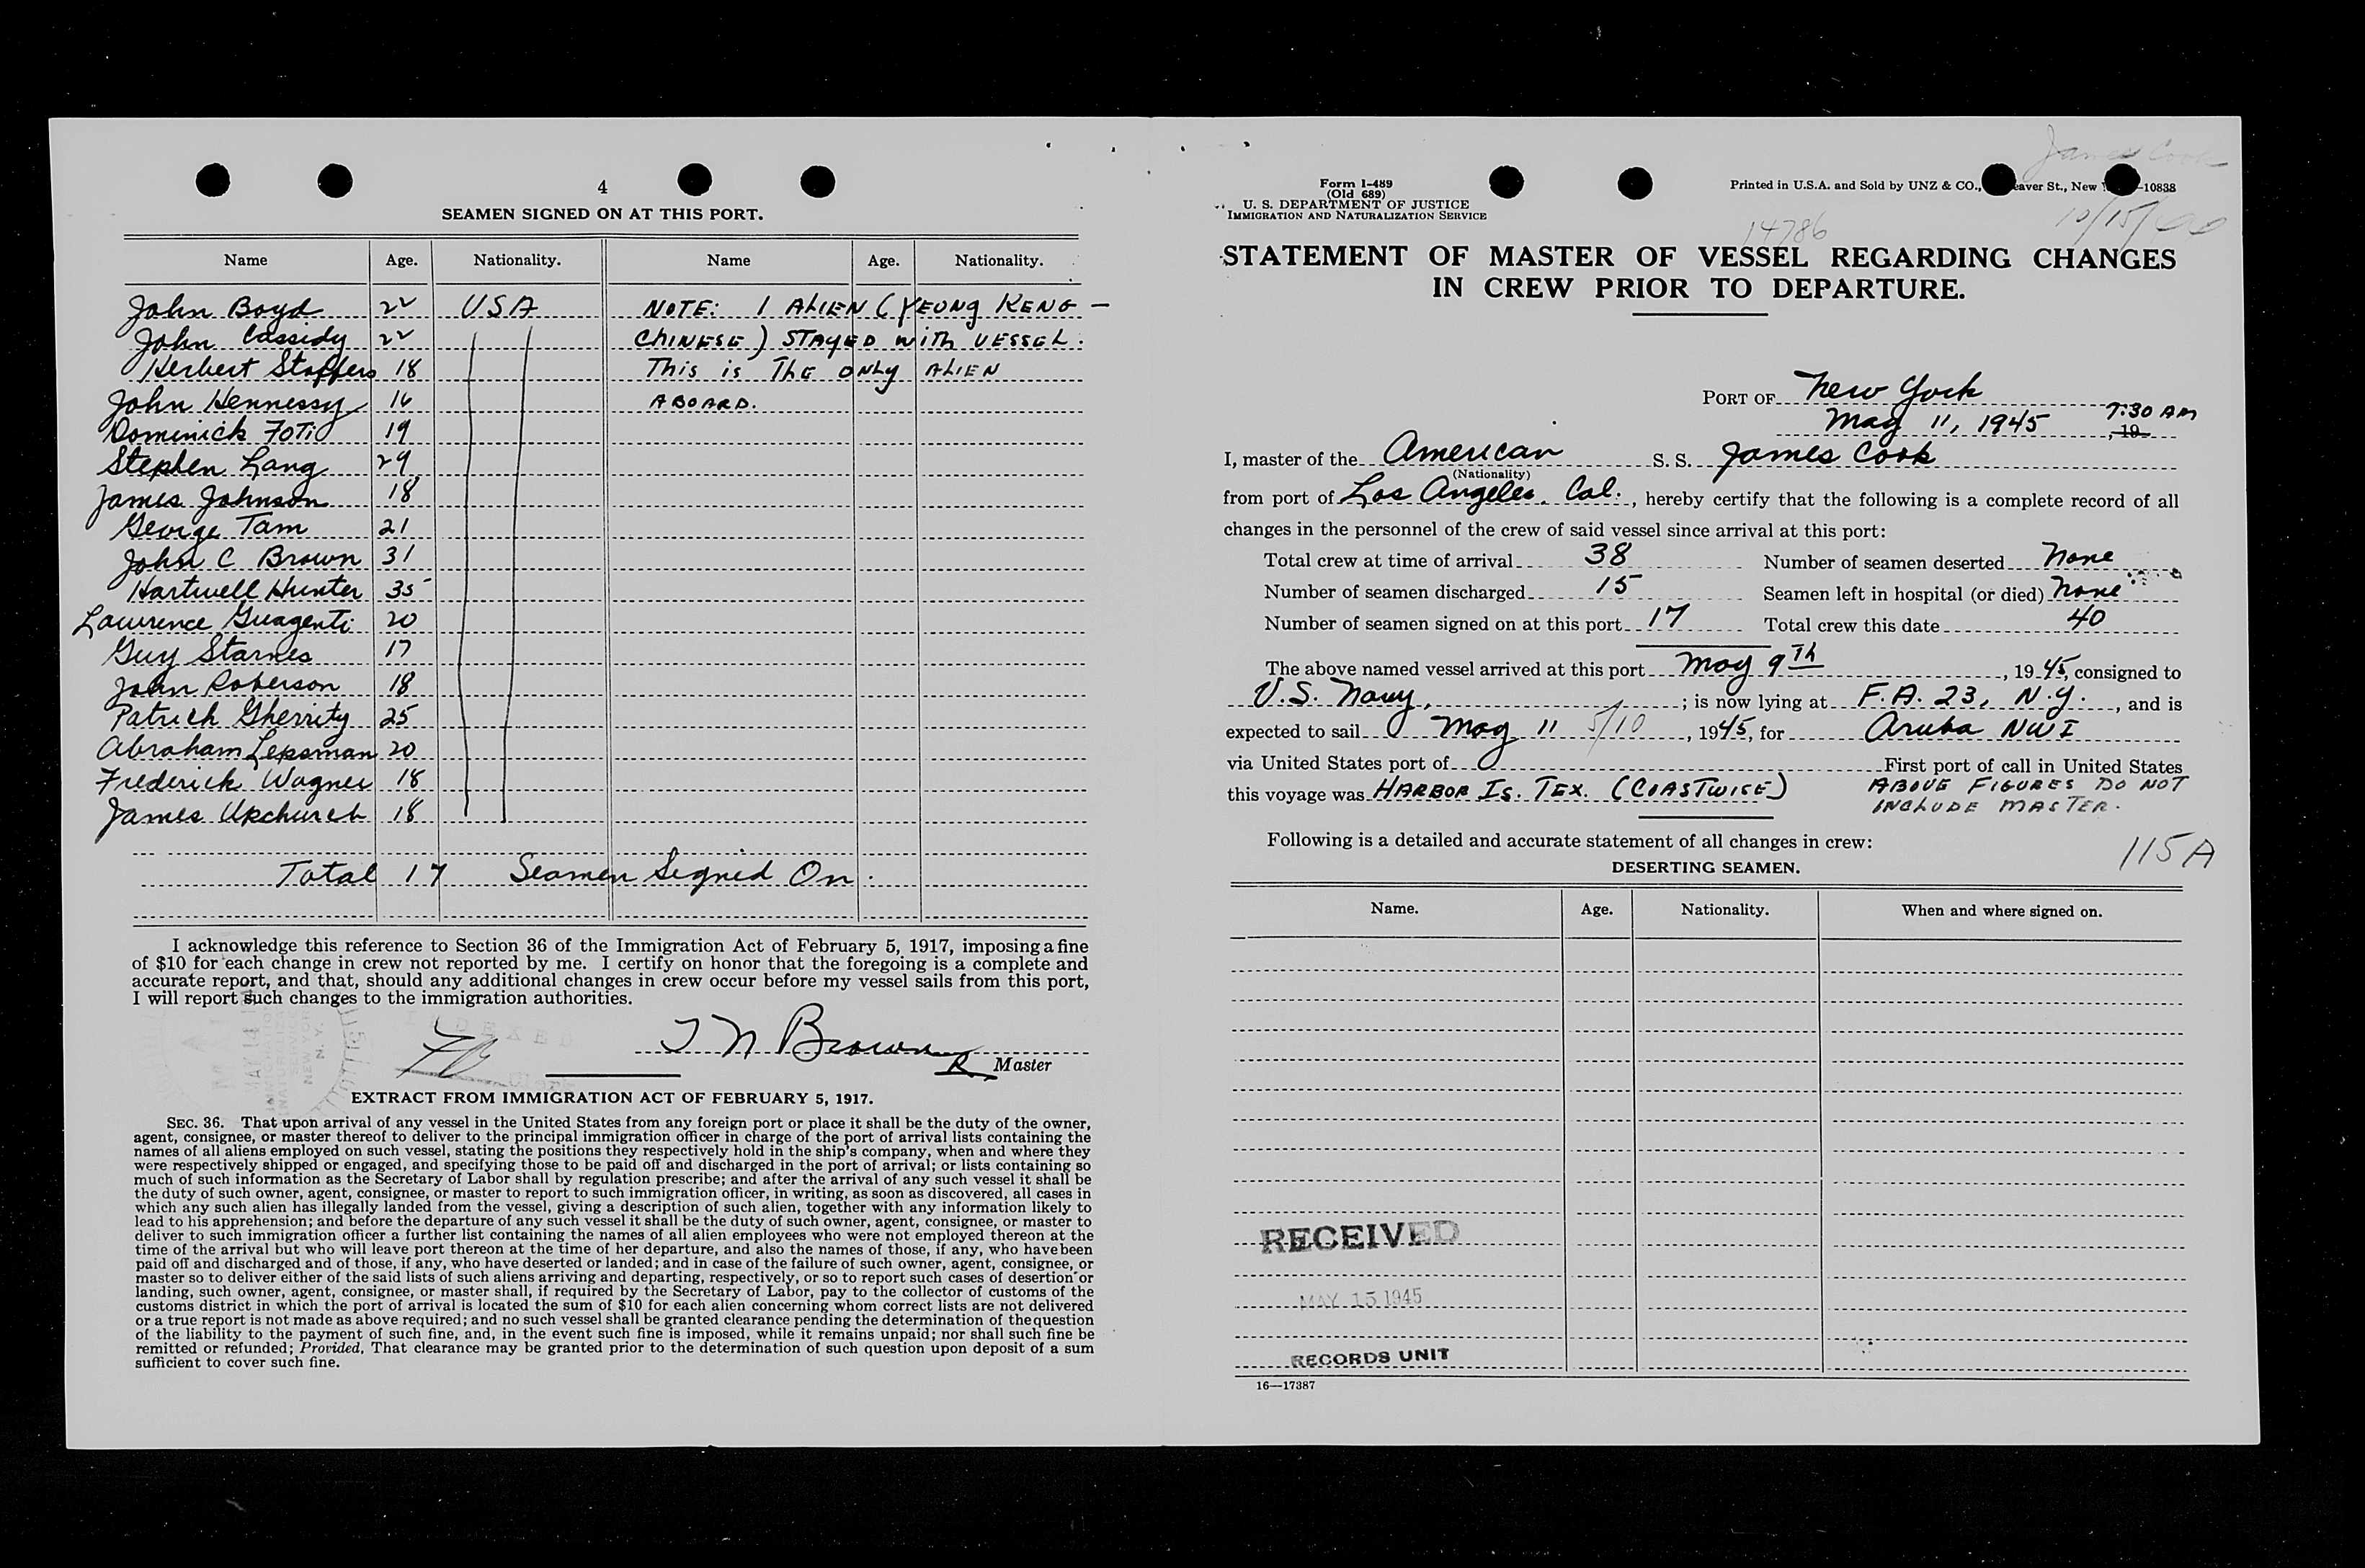 4
SEAMEN SIGNED ON AT THIS PORT.
Name Age. Nationality. Name Age. Nationality.
John Boyd 22 USA NOTE: 1 ALIEN (YEUNG KENG —
John Cassidy 22 CHINESE) STAYED WITH VESSEL.
Herbert Stoffers 18 THIS IS THE ONLY ALIEN
John Hennessy 16 ABOARD.
Dominick Foti 19
Stephen Lang 29
James Johnson 18
George Tam 21
John C Brown 31
Hartwell Hunter 35
Lawrence Guagenti 20
Guy Starnes 17
John Roberson 18
Patrick Gherrity 25
Abraham Lepsman 20
Frederick Wagner 18
James Upchurch 18
Total 17 Seamen Signed On.
I acknowledge this reference to Section 36 of the Immigration Act of February 5, 1917, imposing a fine
of $10 for each change in crew not reported by me. I certify on honor that the foregoing is a complete and
accurate report, and that, should any additional changes in crew occur before my vessel sails from this port,
I will report such changes to the immigration authorities.
T N Brown
Master
EXTRACT FROM IMMIGRATION ACT OF FEBRUARY 5, 1917.
SEC. 36. That upon arrival of any vessel in the United States from any foreign port or place it shall be the duty of the owner,
agent, consignee, or master thereof to deliver to the principal immigration officer in charge of the port of arrival lists containing the
names of all aliens employed on such vessel, stating the positions they respectively hold in the ship's company, when and where they
were respectively shipped or engaged, and specifying those to be paid off and discharged in the port of arrival; or lists containing so
much of such information as the Secretary of Labor shall by regulation prescribe; and after the arrival of any such vessel it shall be
the duty of such owner, agent, consignee, or master to report to such immigration officer, in writing, as soon as discovered, all cases in
which any such alien has illegally landed from the vessel, giving a description of such alien, together with any information likely to
lead to his apprehension; and before the departure of any such vessel it shall be the duty of such owner, agent, consignee, or master to
deliver to such immigration officer a further list containing the names of all alien employees who were not employed thereon at the
time of the arrival but who will leave port thereon at the time of her departure, and also the names of those, if any, who have been
paid off and discharged and of those, if any, who have deserted or landed; and in case of the failure of such owner, agent, consignee, or
master so to deliver either of the said lists of such aliens arriving and departing, respectively, or so to report such cases of desertion or
landing, such owner, agent, consignee, or master shall, if required by the Secretary of Labor, pay to the collector of customs of the
customs district in which the port of arrival is located the sum of $10 for each alien concerning whom correct lists are not delivered
or a true report is not made as above required; and no such vessel shall be granted clearance pending the determination of the question
of the liability to the payment of such fine, and, in the event such fine is imposed, while it remains unpaid; nor shall such fine be
remitted or refunded; Provided, That clearance may be granted prior to the determination of such question upon deposit of a sum
sufficient to cover such fine.
James Cook
Form I-489
(Old 689)
U. S. DEPARTMENT OF JUSTICE
IMMIGRATION AND NATURALIZATION SERVICE
Printed in U.S.A. and Sold by UNZ & CO., eaver St., New -10838
14786
STATEMENT OF MASTER OF VESSEL REGARDING CHANGES
IN CREW PRIOR TO DEPARTURE.
PORT OF New York
May 11, 1945 7:30 AM , 19
I, master of the American S. S. James Cook
(Nationality)
from port of Los Angeles, Cal., hereby certify that the following is a complete record of all
changes in the personnel of the crew of said vessel since arrival at this port:
Total crew at time of arrival 38 Number of seamen deserted None
Number of seamen discharged 15 Seamen left in hospital (or died) None
Number of seamen signed on at this port 17 Total crew this date 40
The above named vessel arrived at this port May 9th, 1945, consigned to
U.S. Navy, ; is now lying at F.A. 23, N.Y., and is
expected to sail May 11 5/10, 1945, for Aruba NWI
via United States port of First port of call in United States
this voyage was HARBOR IS. TEX. (COASTWISE) ABOVE FIGURES DO NOT
INCLUDE MASTER.
Following is a detailed and accurate statement of all changes in crew:
115A
DESERTING SEAMEN.
Name. Age. Nationality. When and where signed on.
RECEIVED
MAY 15 1945
RECORDS UNIT
16—17387